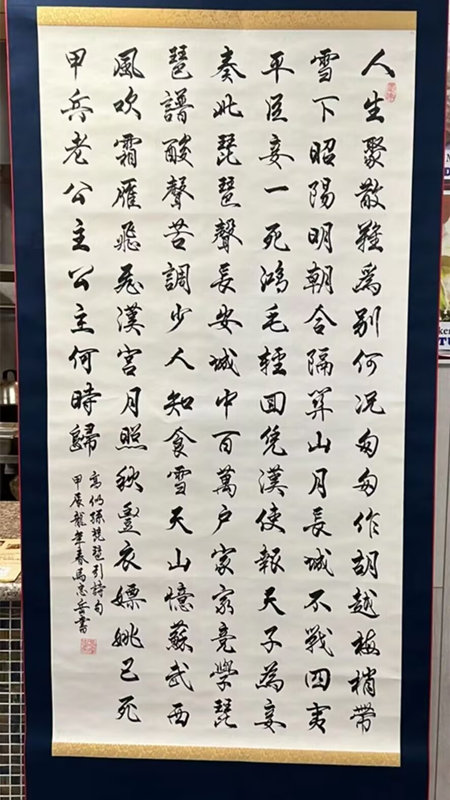 人生聚散難爲别何况匆匆作胡越梅梢帶
雪下昭陽明朝合隔關山月長城不戰四夷
平臣妾一死鴻毛輕回凭漢使報天子為妾
奏此琵琶聲長安城中百萬户家家竞學琵
琶譜酸聲苦調少人知食雪天山憶蘇武西
風吹霜雁飛飛漢宮月照秋衣嫖姚已死
甲兵老公主公主何時歸
高似孫琵琶引詩句
甲辰龍年春馬忠岳書